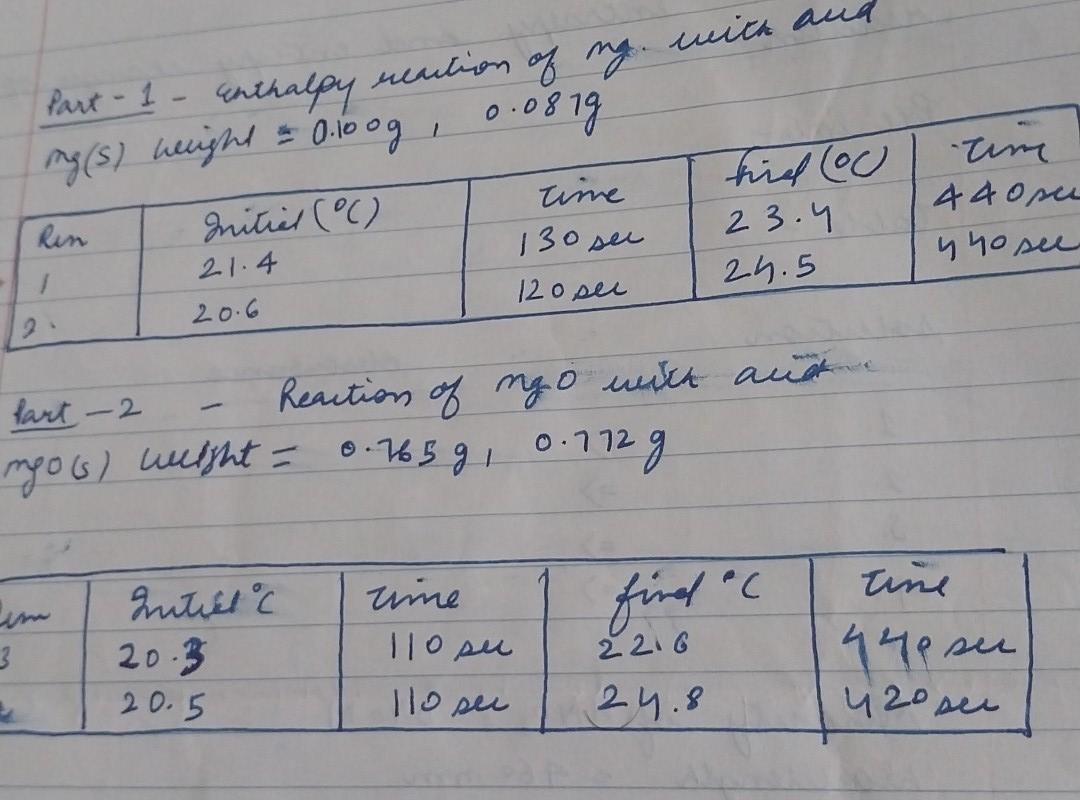 Part - 1 - Enthalpy reaction of mg. with acid
mg(s) weight = 0.100g, 0.087g
Run Initial (°C) time final (°C) time
1 21.4 130 sec 23.4 440 sec
2. 20.6 120 sec 24.5 440 sec
Part - 2 - Reaction of mgO with acid
mgo(s) weight = 0.765g, 0.772g
Initial °C time final °C time
3 20.3 110 sec 22.6 440 sec
20.5 110 sec 24.8 420 sec